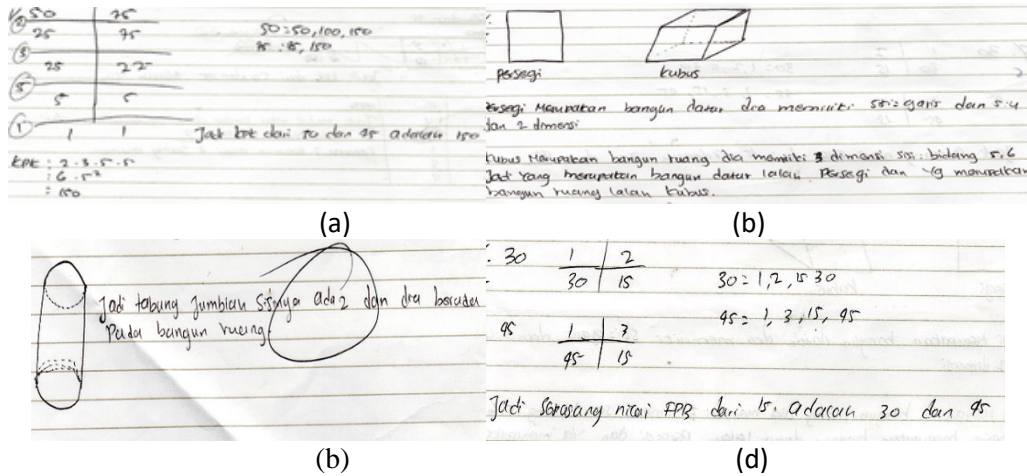 50 75
② 25 75
③ 25 25
⑤ 5 5
① 1 1
50 : 50, 100, 150
75 : 75, 150
Jadi kpk dari 50 dan 75 adalah 150
KPK : 2 . 3 . 5 . 5
: 6 . 5²
= 150
(a)
persegi
kubus
Persegi Merupakan bangun datar dia memiliki sisi = garis dan s.4
dan 2 dimensi
Kubus Merupakan bangun ruang dia memiliki 3 dimensi sisi : bidang s, 6
Jadi Yang merupakan bangun datar ialah Persegi dan yg merupakan
bangun ruang ialah Kubus.
(b)
Jadi tabung Jumblah Sisinya ada 2 dan dia berada
Pada bangun ruang.
(b)
30 1 2
30 15
30 = 1, 2, 15 30
45 1 3
45 15
45 = 1, 3, 15, 45
Jadi Sepasang nilai FPB dari 15. adalah 30 dan 45
(d)